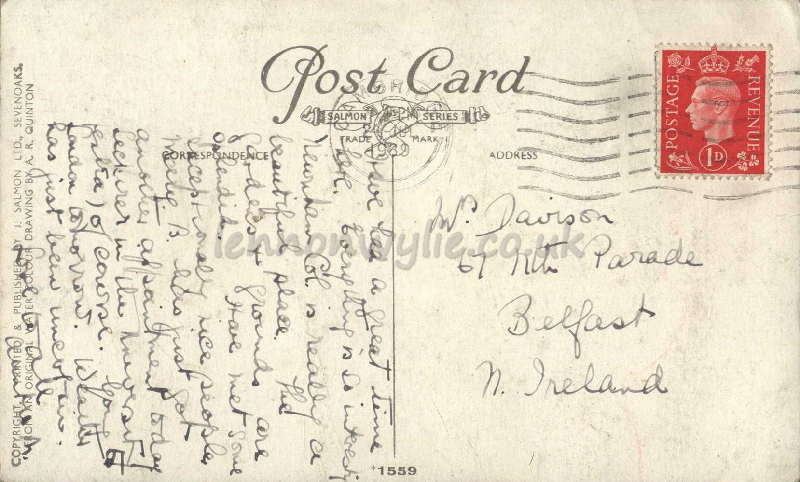 Post Card
SALMON SERIES
TRADE MARK
CORRESPONDENCE
ADDRESS
1939
POSTAGE
REVENUE
1D
Have had a great time
here. Everything is so interesting
Newnham Col. is really a
beautiful place. The
gardens & grounds are
splendid. Have met some
exceptionally nice people.
B. has just got
another appointment today
lecturer in the University
of course. Going to
London tomorrow. Weather
has just been uncertain.
Mrs Davison
67 Nth Parade
Belfast
N. Ireland
COPYRIGHT PRINTED & PUBLISHED BY J. SALMON LTD., SEVENOAKS.
FROM AN ORIGINAL WATER COLOUR DRAWING BY A. R. QUINTON
*1559
lennonwylie.co.uk